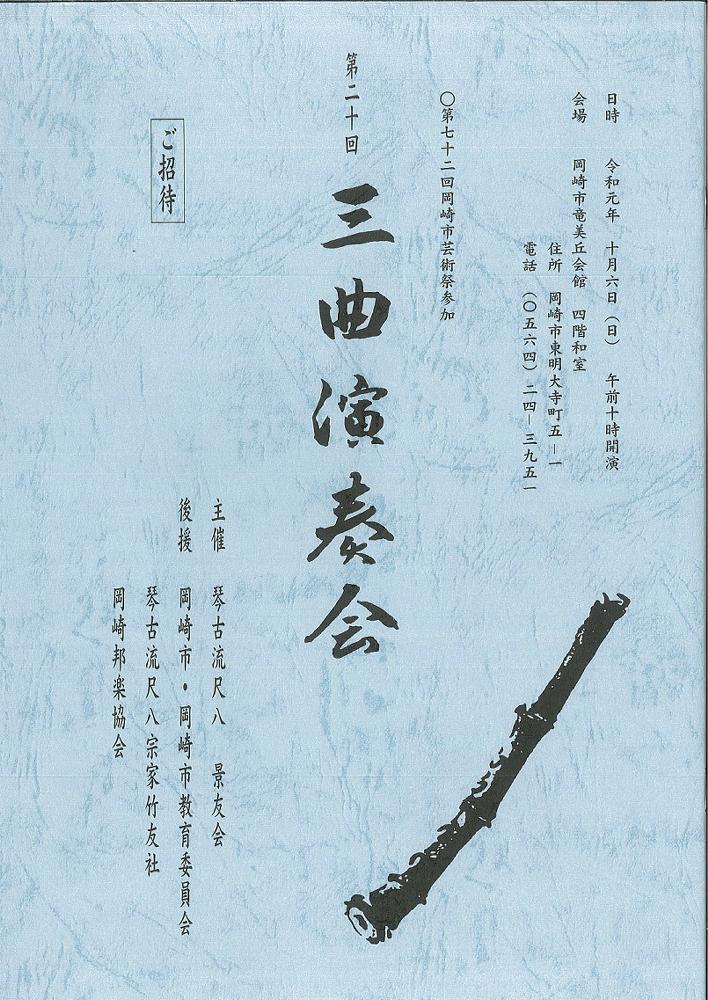 日時　令和元年　十月六日（日）　午前十時開演
会場　岡崎市竜美丘会館　四階和室
住所　岡崎市東明大寺町五―一
電話　（〇五六四）二四―三九五一
〇第七十二回岡崎市芸術祭参加
第二十回
三曲演奏会
ご招待
主催　琴古流尺八　景友会
後援　岡崎市・岡崎市教育委員会
琴古流尺八宗家竹友社
岡崎邦楽協会